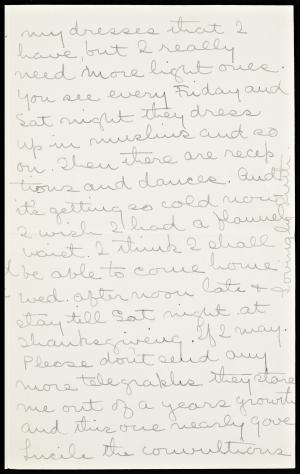 my dresses that I
have, but I really
need more light ones.
You see every Friday and
Sat night they dress
up in muslins and so
on. Then there are recep
tions and dances. And
it's getting so cold now
I wish I had a flannel
waist. I think I shall
be able to come home
Wed. afternoon late &
stay till Sat night at
Thanksgiving. If I may.
Please don't send any
more telegraphs they scare
me out of a years growth
and this one nearly gave
Lucile the convultions